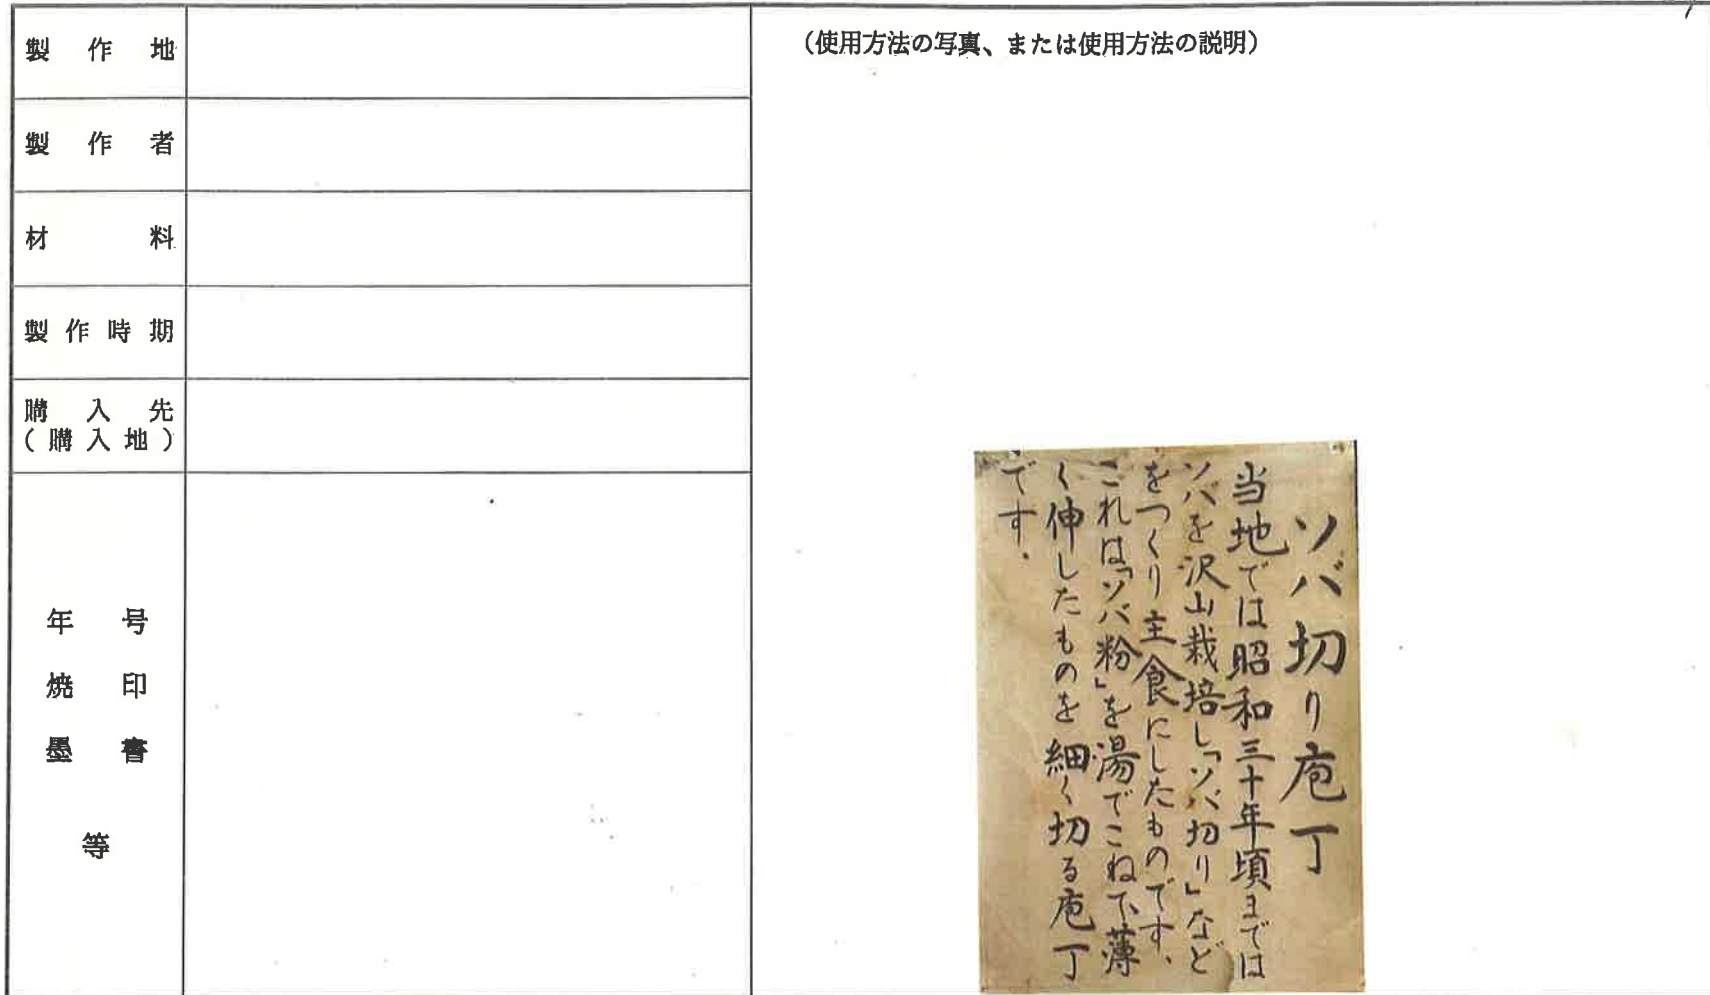 製作地
製作者
材料
製作時期
購入先
(購入地)
年号
焼印
墨書
等
(使用方法の写真、または使用方法の説明)
ソバ切り庖丁
当地では昭和三十年頃までは
ソバを沢山栽培し「ソバ切り」など
をつくり主食にしたものです、
これは「ソバ粉」を湯でこねて、薄
く伸したものを細く切る庖丁
です.